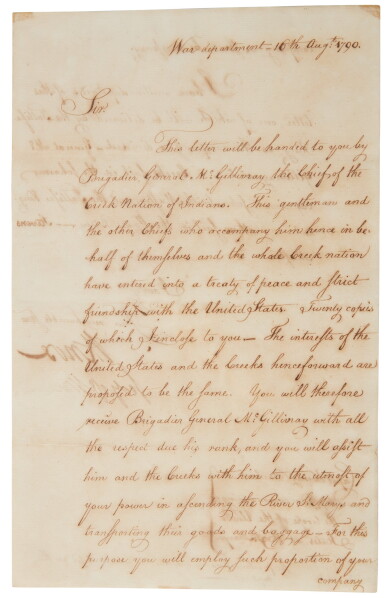 War department - 16th Augt. 1790.
Sir.
This letter will be handed to you by
Brigadier General Mc.Gillivray the Chief of the
Creek Nation of Indians. This gentleman and
the other Chiefs who accompany him hence in be-
half of themselves and the whole Creek nation
have entered into a treaty of peace and strict
friendship with the United States Twenty copies
of which I enclose to you — The interests of the
United States and the Creeks henceforward are
proposed to be the same. You will therefore
receive Brigadier General Mc.Gillivray with all
the respect due his rank, and you will assist
him and the Creeks with him to the utmost of
your power in ascending the River St Mary's and
transporting their goods and baggage — For this
purpose you will employ such proportion of your
company